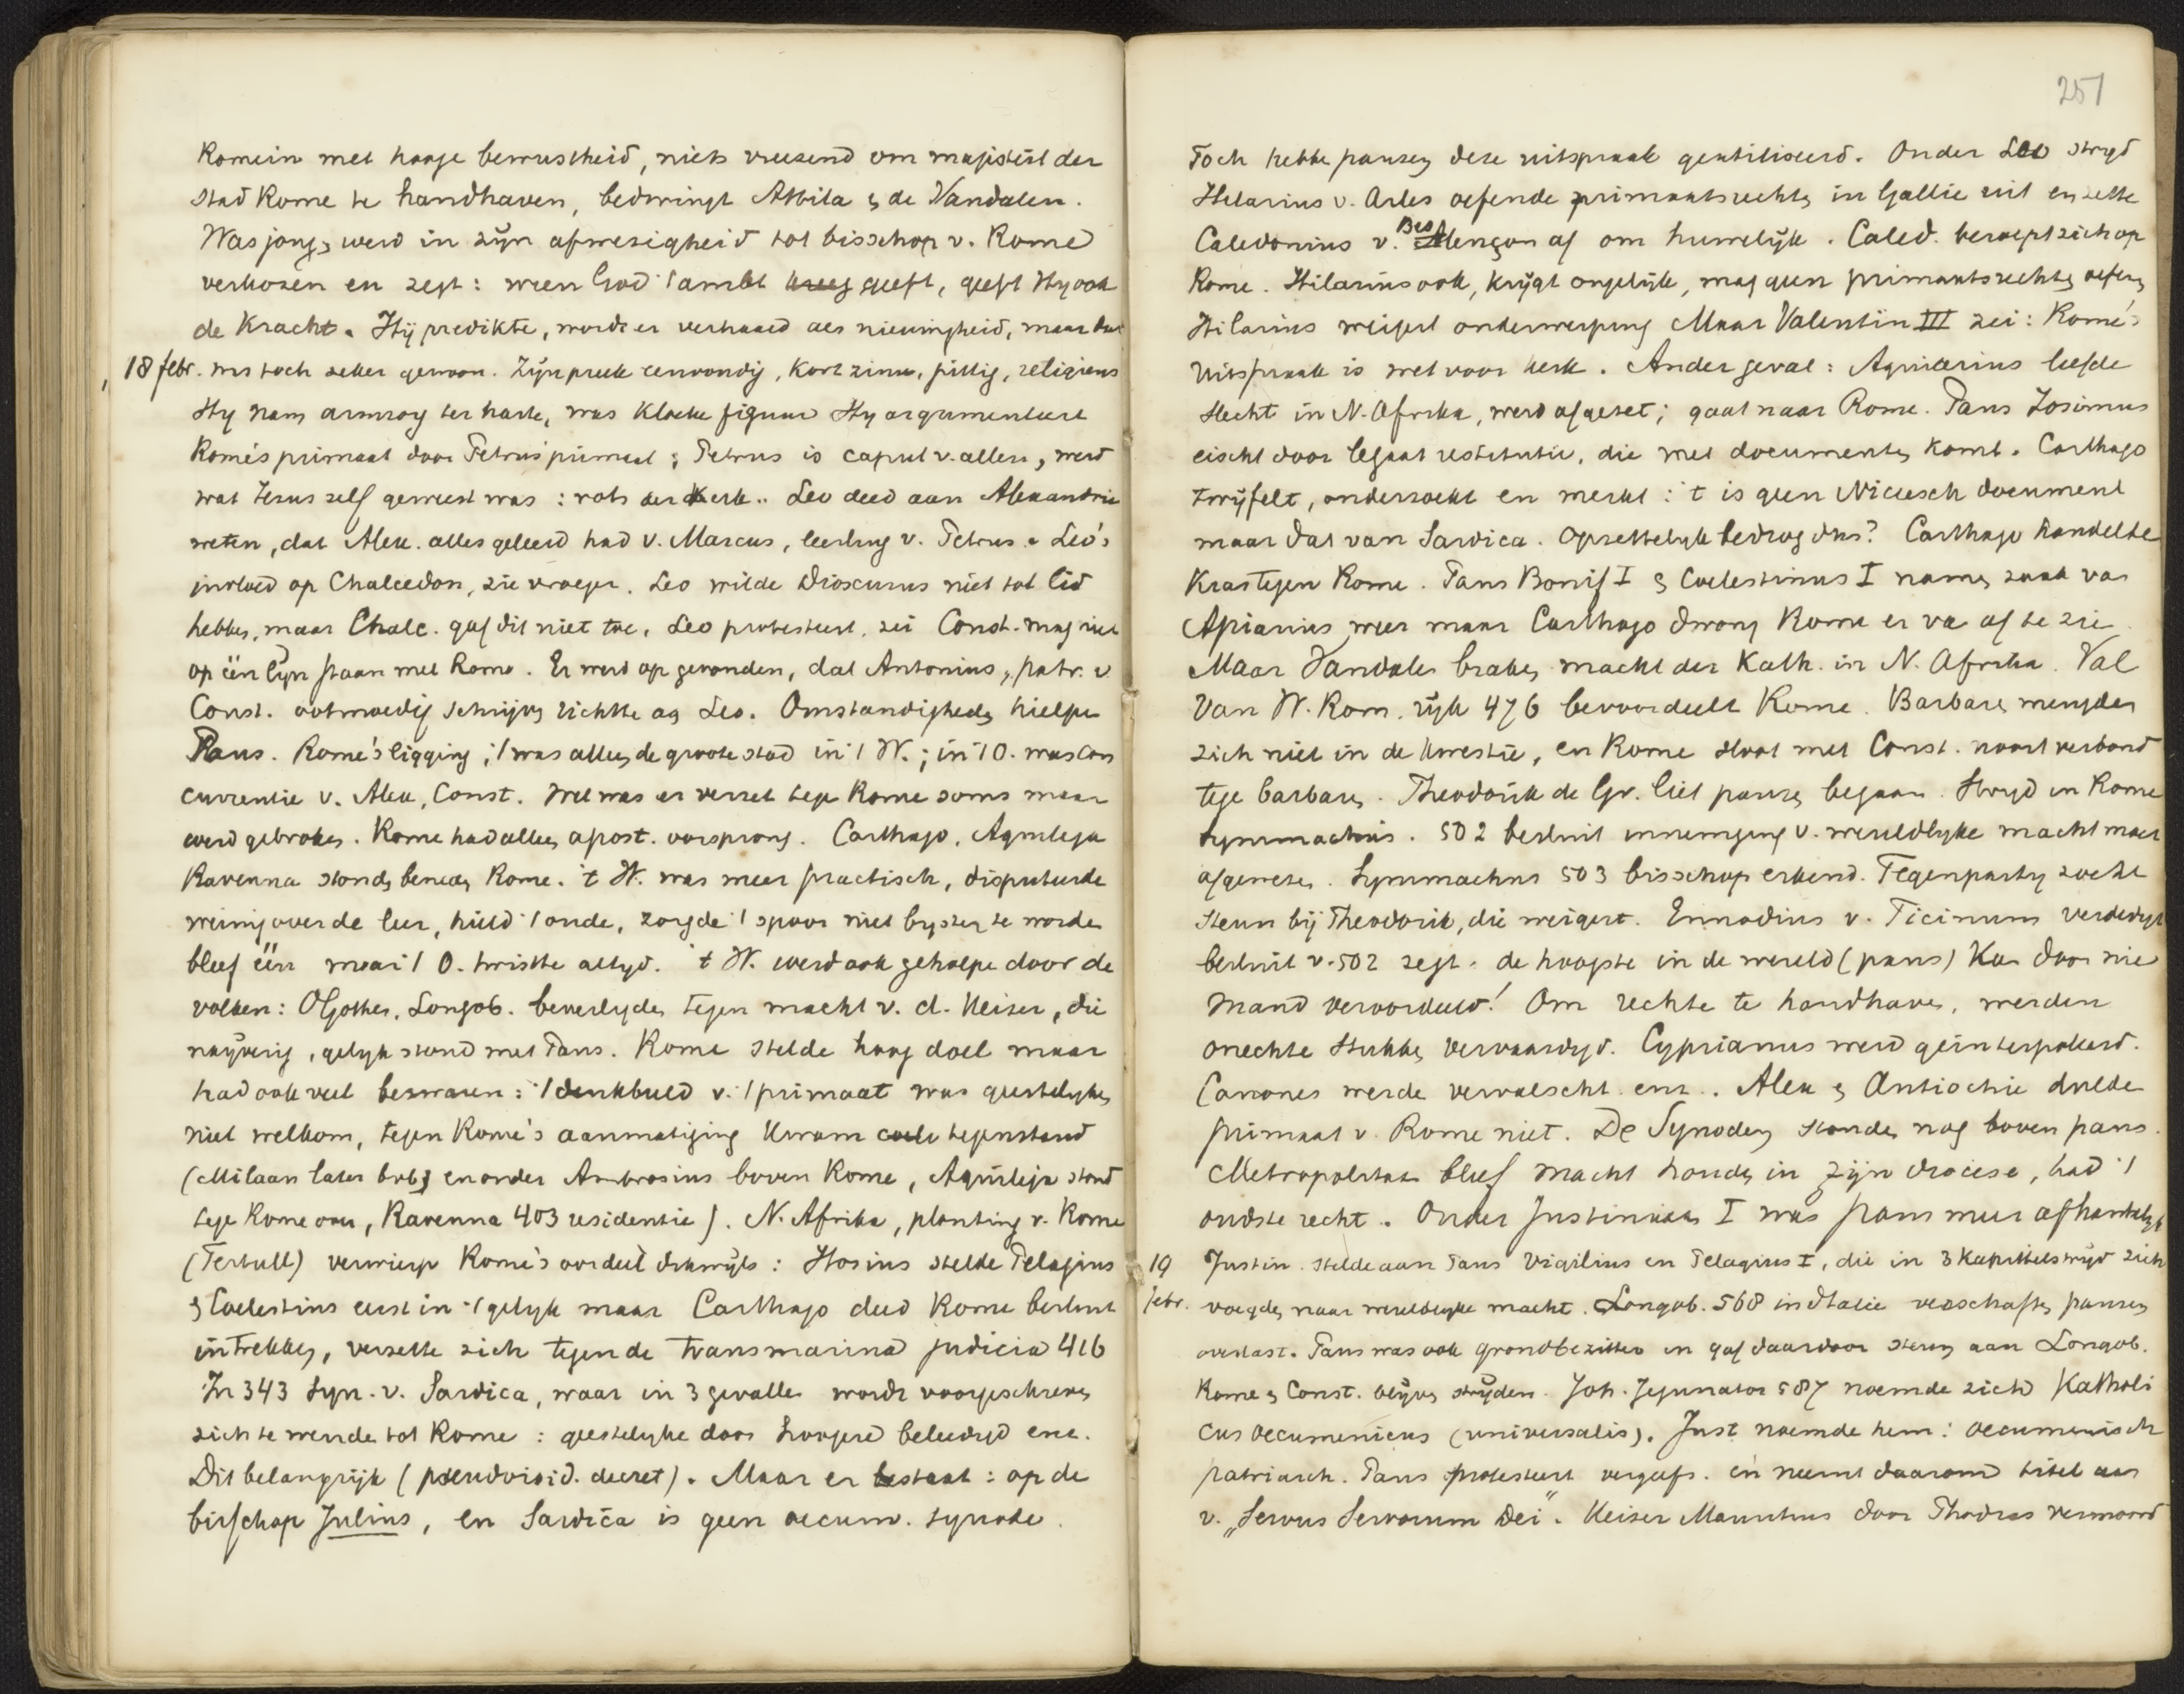 Romein met hooge bewustheid, niets vreezend om majesteit der
stad Rome te handhaven, bedwingt Attila & de Vandalen.
Was jong, werd in zijn afwezigheid tot bisschop v. Rome
verkozen en zegt: wien God 't ambt geeft, geeft Hy ook
de kracht. Hij predikte, wordt er verhaald als nieuwigheid, maar dat
18 febr. was toch zeker gewoon. Zijn preek eenvoudig, kort zinn, pittig, religieus
Hy nam armzorg ter harte, was kloeke figuur Hy argumenteert
Rome's primaat door Petrus' primaat; Petrus is caput v. allen, werd
wat Jezus zelf geweest was: rots der kerk.. Leo deed aan Alexandrie
weten, dat Alex. alles geleerd had v. Marcus, leerling v. Petrus. Leo's
invloed op Chalcedon, zie vroeger. Leo wilde Dioscurus niet tot lid
hebben, maar Chalc. gaf dit niet toe. Leo protesteert, zei Const. mag niet
op één lijn staan met Rome. Er werd op gevonden, dat Antonius, patr. v
Const. ootmoedig schrijven richtte aan Leo. Omstandigheden hielpen
Paus. Rome's ligging; 't was alleen de groote stad in 't W.; in 't O. was con
currentie v. Alex, Const. Wel was er verzet tege Rome soms maar
werd gebroken. Rome had alleen apost. oorsprong. Carthago, Aquileja
Ravenna stonden beneden Rome. 't W. was meer practisch, disputeerde
weinig over de leer, hield 't oude, zorgde 't spoor niet byster te worden
bleef één maar 't O. twistte altyd. 't W. werd ook geholpe door de
volken: OGothen, Longob. beveiligden tegen macht v. d. Keizer, die
naijverig, gelyk stond met Paus. Rome stelde hoog doel maar
had ook veel bezwaren: 't denkbeeld v. 't primaat was geestelyken
niet welkom, tegen Rome's aanmatiging kwam tegenstand
(Milaan later bvb; en onder Ambrosius boven Rome, Aquileja stond
tege Rome over, Ravenna 403 residentie). N. Afrika, planting v. Rome
(Tertull) verwierp Rome's oordeel dikwijls: Hosius stelde Pelagius
& Coelestius eerst in 't gelyk maar Carthago deed Rome besluit
intrekken, verzette zich tegen de transmarina judicia 416
In 343 Syn. v. Sardica, waar in 3 gevallen wordt voorgeschreven
zich te wenden tot Rome: geestelyke door hoogere beleedigd enz.
Dit belangrijk (pseudoisid. decret). Maar er bestaat: op de
bisschop Julius, en Sardica is geen oecum. synode.
251
Toch hebbe pausen deze uitspraak geutiliseerd. Onder Leo stryd
Hilarius v. Arles oefende primaatsrechten in Gallie uit en zette
Caledonius v. Besançon af om huwelijk. Caled. beroept zich op
Rome. Hilarius ook, krijgt ongelijk, mag geen primaatsrechten oefenen
Hilarius weigert onderwerping Maar Valentin III zei: Rome's
uitspraak is wet voor kerk. Ander geval: leefde
slecht in N. Afrika, werd afgezet; gaat naar Rome. Paus Zosimus
eischt door legaat restitutie, die met documenten komt. Carthago
twijfelt, onderzoekt en merkt: 't is geen Niceesch document
maar dat van Sardica. Opzettelyk bedrog dus? Carthago handelde
kras tegen Rome. Paus Bonif I & Coelestinus I namen zaak van
Apiarius weer maar Carthago dwong Rome er van af te zien
Maar Vandalen braken macht der Kath. in N. Afrika. Val
van W. Rom. rijk 476 bevoordeelt Rome. Barbaren mengden
zich niet in de kwestie, en Rome sloot met Const. nooit verbond
tege barbaren. Theodorik de Gr. liet pausen begaan. Stryd in Rome
Symmachus. 502 besluit inmenging v. wereldlyke macht moet
afgewezen. Symmachus 503 bisschop erkend. Tegenparty zocht
steun bij Theodorik, die weigert. Ennodius v. Ticinum verdedigt
besluit v. 502 zegt. de hoogste in de wereld (paus) kan door nie
mand veroordeeld! Om rechte te handhaven, werden
onechte stukken vervaardigd. Cyprianus werd geinterpoleerd.
Canones werde vervalscht enz.. Alex & Antiochie dulde
primaat v. Rome niet. De Synoden stonden nog boven paus.
Metropolitaan bleef macht houden in zijn diocese, had 't
oudste recht. Onder Justiniaan I was paus meer afhankelyk
19 Justin. stelde aan Paus Vigilius en Pelagius I, die in 3 kapittelstrijd zich
febr. voegden naar wereldlyke macht. Longob. 568 in Italie verschaften pausen
overlast. Paus was ook grondbezitter en gaf daardoor steun aan Longob.
Rome & Const. blijven strijden. Joh. Jejunator 587 noemde zich Katholi
cus oecumenicus (universalis). Just noemde hem: oecumenisch
patriarch. Paus protesteert vergeefs. en neemt daarom titel aan
v. „Servus Servorum Dei". Keizer Mauritius door vermoord